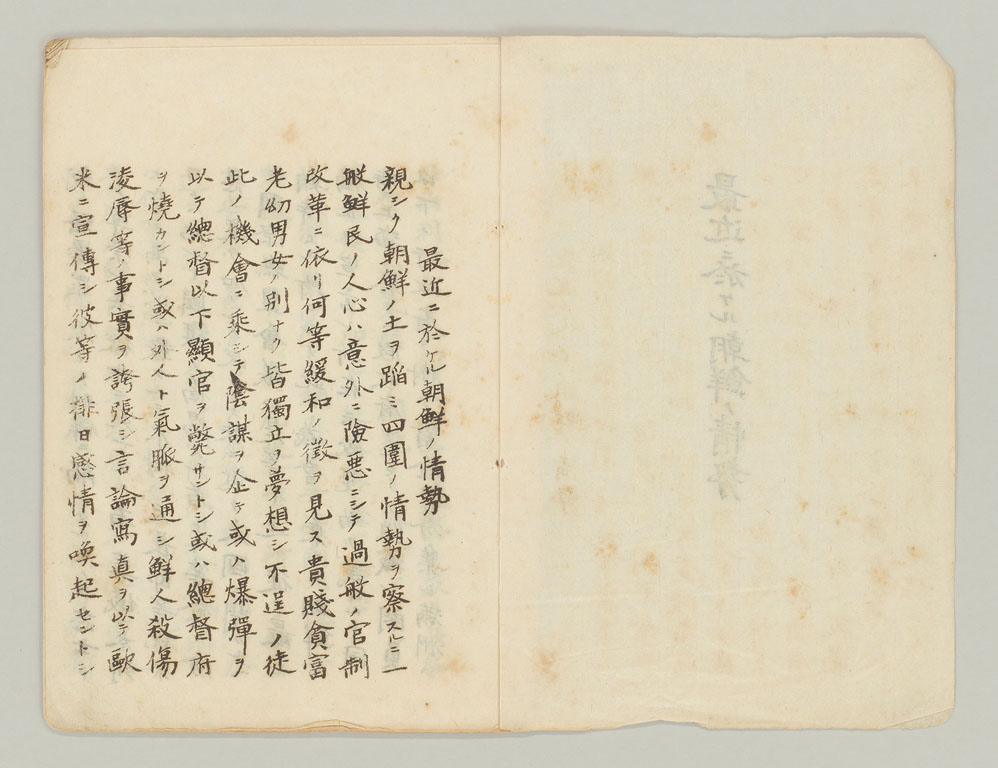 最近ニ於ケル朝鮮ノ情勢
親シク朝鮮ノ土ヲ蹈ミ四圍ノ情勢ヲ察スルニ一
般鮮民ノ人心ハ意外ニ險惡ニシテ過般ノ官制
改革ニ依リ何等緩和ノ徴ヲ見ス貴賤貧富
老幼男女ノ別ナク皆獨立ヲ夢想シ不逞ノ徒
此ノ機會ニ乘シテ陰謀ヲ企テ或ハ爆彈ヲ
以テ總督以下顯官ヲ斃サントシ或ハ總督府
ヲ燒カントシ或ハ外人ト氣脈ヲ通シ鮮人殺傷
淩辱等ノ事實ヲ誇張シ言論寫真ヲ以テ歐
米ニ宣傳シ彼等ノ排日感情ヲ喚起セントシ